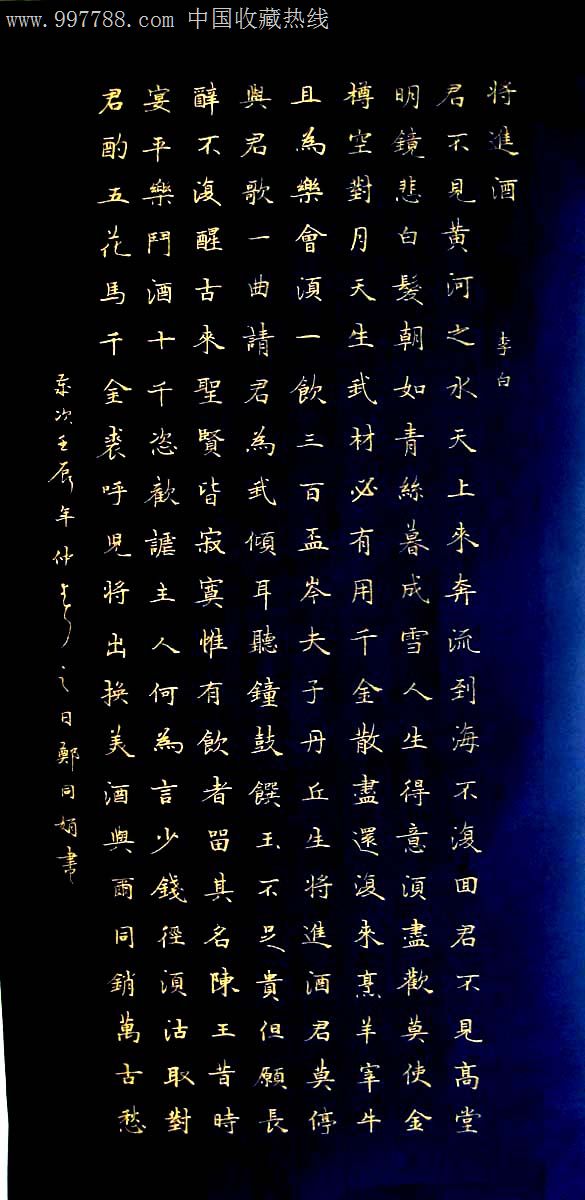 www.997788.com 中国收藏热线
将進酒
李白
君不見黄河之水天上來奔流到海不復回君不見髙堂
明鏡悲白髮朝如青絲暮成雪人生得意須盡歡莫使金
樽空對月天生我材必有用千金散盡還復來烹羊宰牛
且為樂會須一飲三百盃岑夫子丹丘生将進酒君莫停
與君歌一曲請君為我傾耳聽鐘鼓饌玉不足貴但願長
醉不復醒古來聖賢皆寂寞惟有飲者留其名陳王昔時
宴平樂鬥酒十千恣歡謔主人何為言少錢徑須沽取對
君酌五花馬千金裘呼兒将出換美酒與爾同銷萬古愁
歲次壬辰年仲春之日鄭同娟書